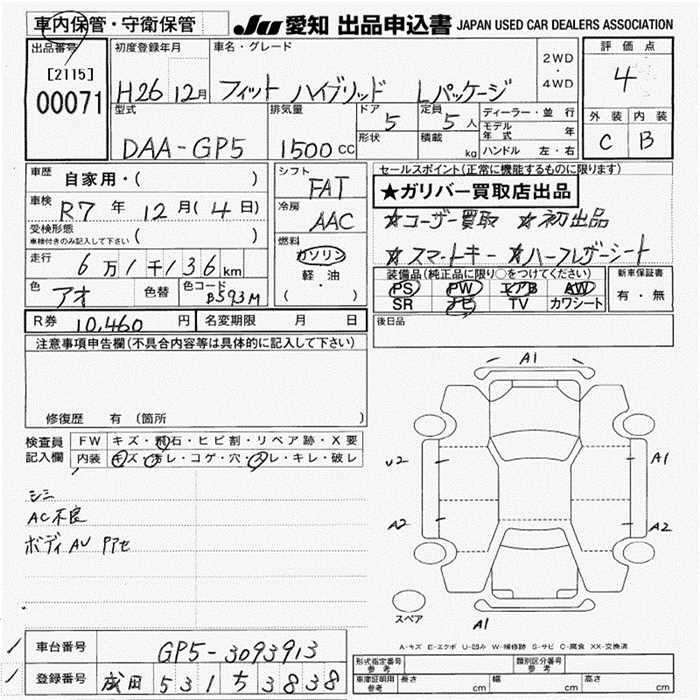 車内保管・守衛保管
JU 愛知 出品申込書 JAPAN USED CAR DEALERS ASSOCIATION
出品番号
[2115]
00071
初度登録年月
H26 12月
車名・グレード
フィット ハイブリッド Lパッケージ
2WD
・
4WD
評価点
4
外装 内装
C B
型式
DAA-GP5
排気量
1500 CC
ドア
5
定員
5 人
形状
積載
kg
ディーラー・並行
モデル年式 年
ハンドル 左・右
車歴
自家用・( )
車検
R7 年 12月(4日)
受検形態
車検付きのみ記入して下さい ( )
走行
6万1千136km
色
アオ
色替
色コード
B593M
シフト
FAT
冷房
AAC
燃料
ガソリン
・
軽・油
( )
セールスポイント(正常に機能するものに限ります)
★ガリバー買取店出品
☆ユーザー買取 ☆初出品
☆スマートキー ☆ハーフレザーシート
装備品(純正品に限り○をつけてください)
PS PW エアB AW
SR ナビ TV カワシート
新車保証書
有・無
R券 10,460 円
名変期限 月 日
後日品
注意事項申告欄(不具合内容等は具体的に記入して下さい)
修復歴 有 (箇所 )
検査員
記入欄
FW キズ・飛石・ヒビ割・リペア跡・X要
内装 キズ・汚レ・コゲ・穴・スレ・キレ・破レ
シミ
AC不良
ボディAU
A1
U2
A1
A2
A2
A1
スペア
A-キズ E-エクボ U-凹み W-補修跡 S-サビ C-腐食 XX-交換済
車台番号 GP5-3093913
登録番号 成田 531 ち 3838
形式指定番号
参考
類別区分番号
参考
車庫証明用
参考
長さ cm 幅 cm 高さ cm